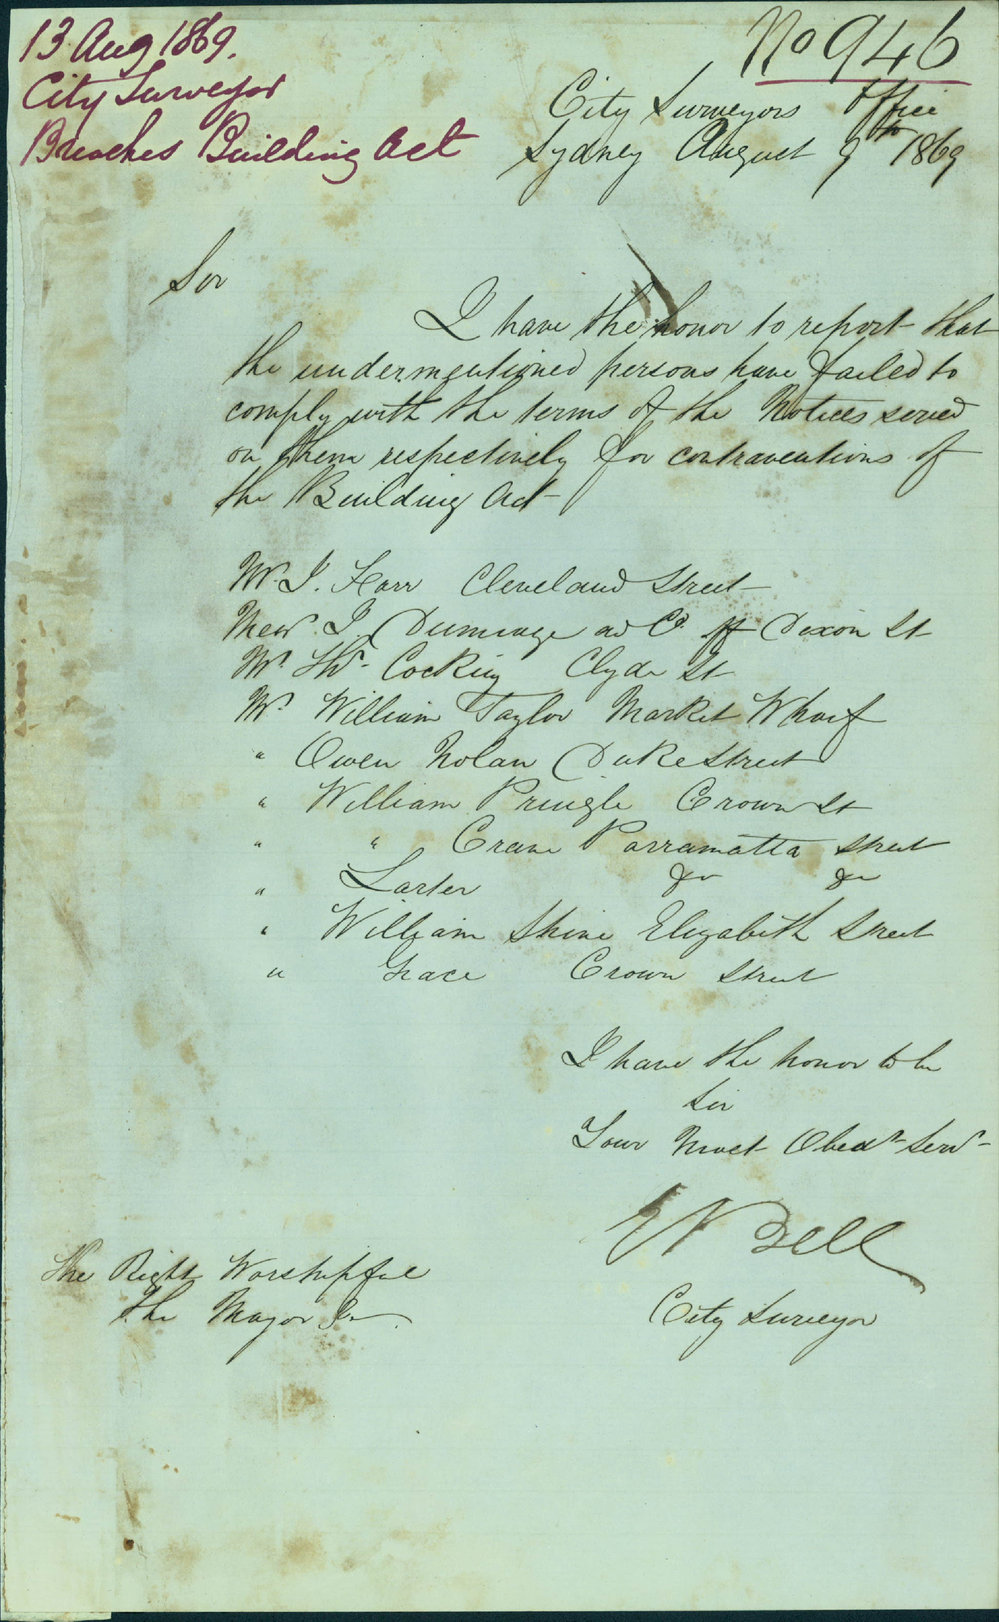 13 Aug 1869.
City Surveyor
Breaches Building Act
No 946
City Surveyors Office
Sydney August 9th 1869
Sir
I have the honor to report that
the undermentioned persons have failed to
comply with the terms of the Notices served
on them respectively for contraventions of
the Building Act
Mr. J. Karr Cleveland Street
J Duminge Co Dixon St
Mr. Thos. Cocking Clyde St
Mr. William Taylor Market Wharf
" Owen Nolan Duke Street
" William Pringle Crown St
" " Crane Parramatta Street
" Larter do do
" William Shine Elizabeth Street
" Grace Crown Street
I have the honor to be
Sir
Your Most Obedt Servt
E Bell
City Surveyor
The Right Worshipful
The Mayor